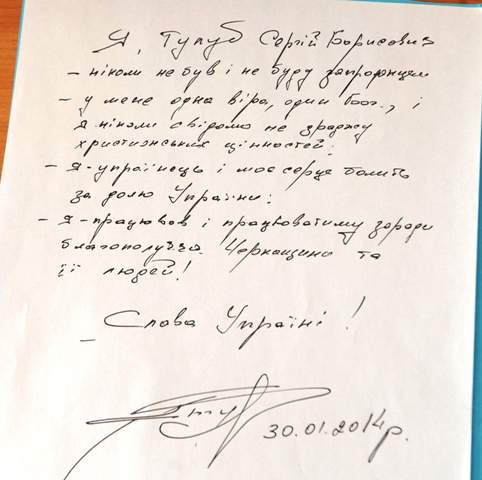 Я, Тулуб Сергій Борисович
– ніколи не був і не буду запроданцем
– у мене одна віра, один Бог., і
я ніколи свідомо не зраджу
християнських цінностей;
– Я-українець і моє серце болить
за долю України;
– Я-працював і працюватиму заради
благополуччя Черкащини та
її людей!
– Слава Україні!
30.01.2014р.